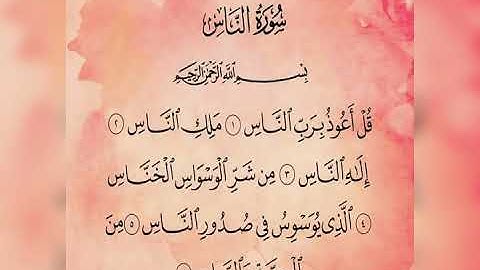 سُورَةُ النَّاسِ
بِسْمِ ٱللَّهِ ٱلرَّحْمَٰنِ ٱلرَّحِيمِ
قُلْ أَعُوذُ بِرَبِّ ٱلنَّاسِ ١ مَلِكِ ٱلنَّاسِ ٢
إِلَٰهِ ٱلنَّاسِ ٣ مِن شَرِّ ٱلْوَسْوَاسِ ٱلْخَنَّاسِ
٤ ٱلَّذِي يُوَسْوِسُ فِي صُدُورِ ٱلنَّاسِ ٥ مِنَ